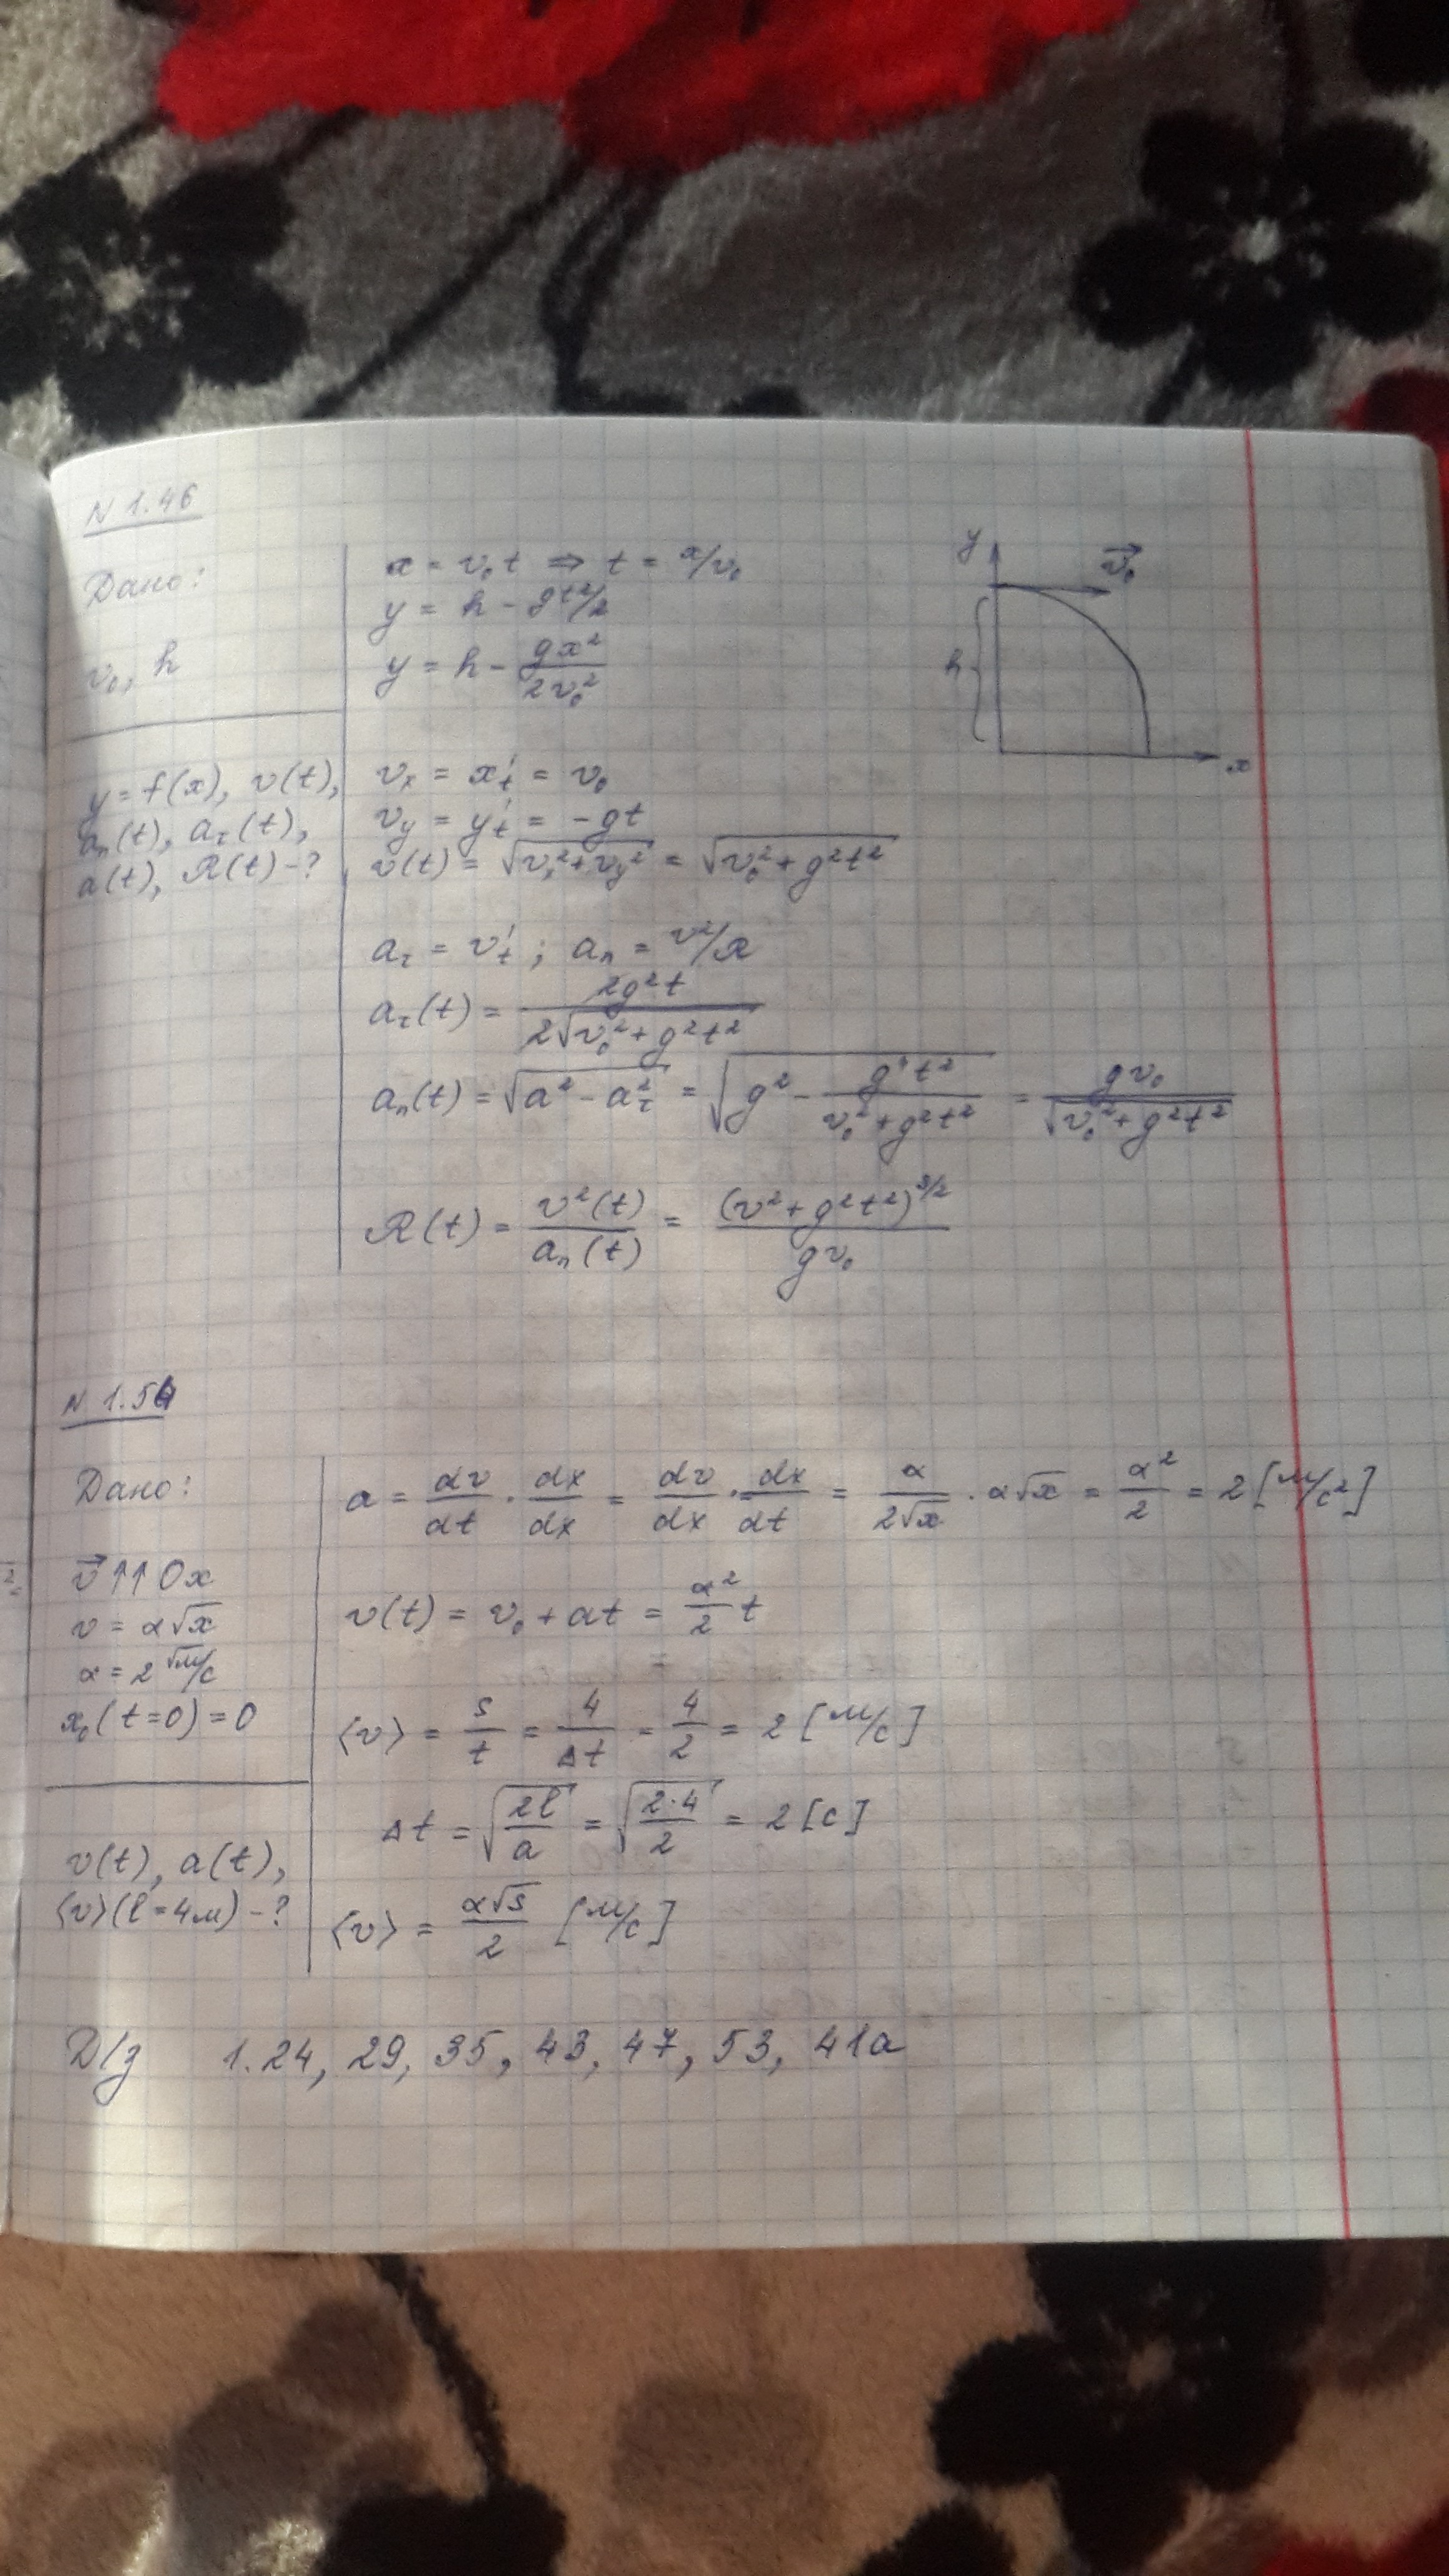 N 1.46
Дано:
v₀, h
y = f(x), v(t),
aₙ(t), a_τ(t),
a(t), R(t) - ?
x = v₀t ⇒ t = x/v₀
y = h - gt²/2
y = h - gx²/2v₀²
vₓ = x'ₜ = v₀
v_y = y'ₜ = -gt
v(t) = √(vₓ² + v_y²) = √(v₀² + g²t²)
a_τ = v'ₜ ; aₙ = v²/R
a_τ(t) = 2g²t / 2√(v₀² + g²t²)
aₙ(t) = √(a² - a_τ²) = √(g² - g⁴t²/(v₀² + g²t²)) = gv₀/√(v₀² + g²t²)
R(t) = v²(t)/aₙ(t) = (v² + g²t²)^(3/2) / gv₀
y
v₀
h
x
N 1.54
Дано:
v ↑↑ Ox
v = α√x
α = 2 √м/с
x₀(t=0) = 0
v(t), a(t),
⟨v⟩(l = 4м) - ?
a = dv/dt · dx/dx = dv/dx · dx/dt = α/2√x · α√x = α²/2 = 2 [м/с²]
v(t) = v₀ + at = α²/2 t
⟨v⟩ = s/t = 4/Δt = 4/2 = 2 [м/с]
Δt = √(2l/a) = √(2·4/2) = 2 [с]
⟨v⟩ = α√s/2 [м/с]
Д/з 1.24, 29, 35, 43, 47, 53, 41а